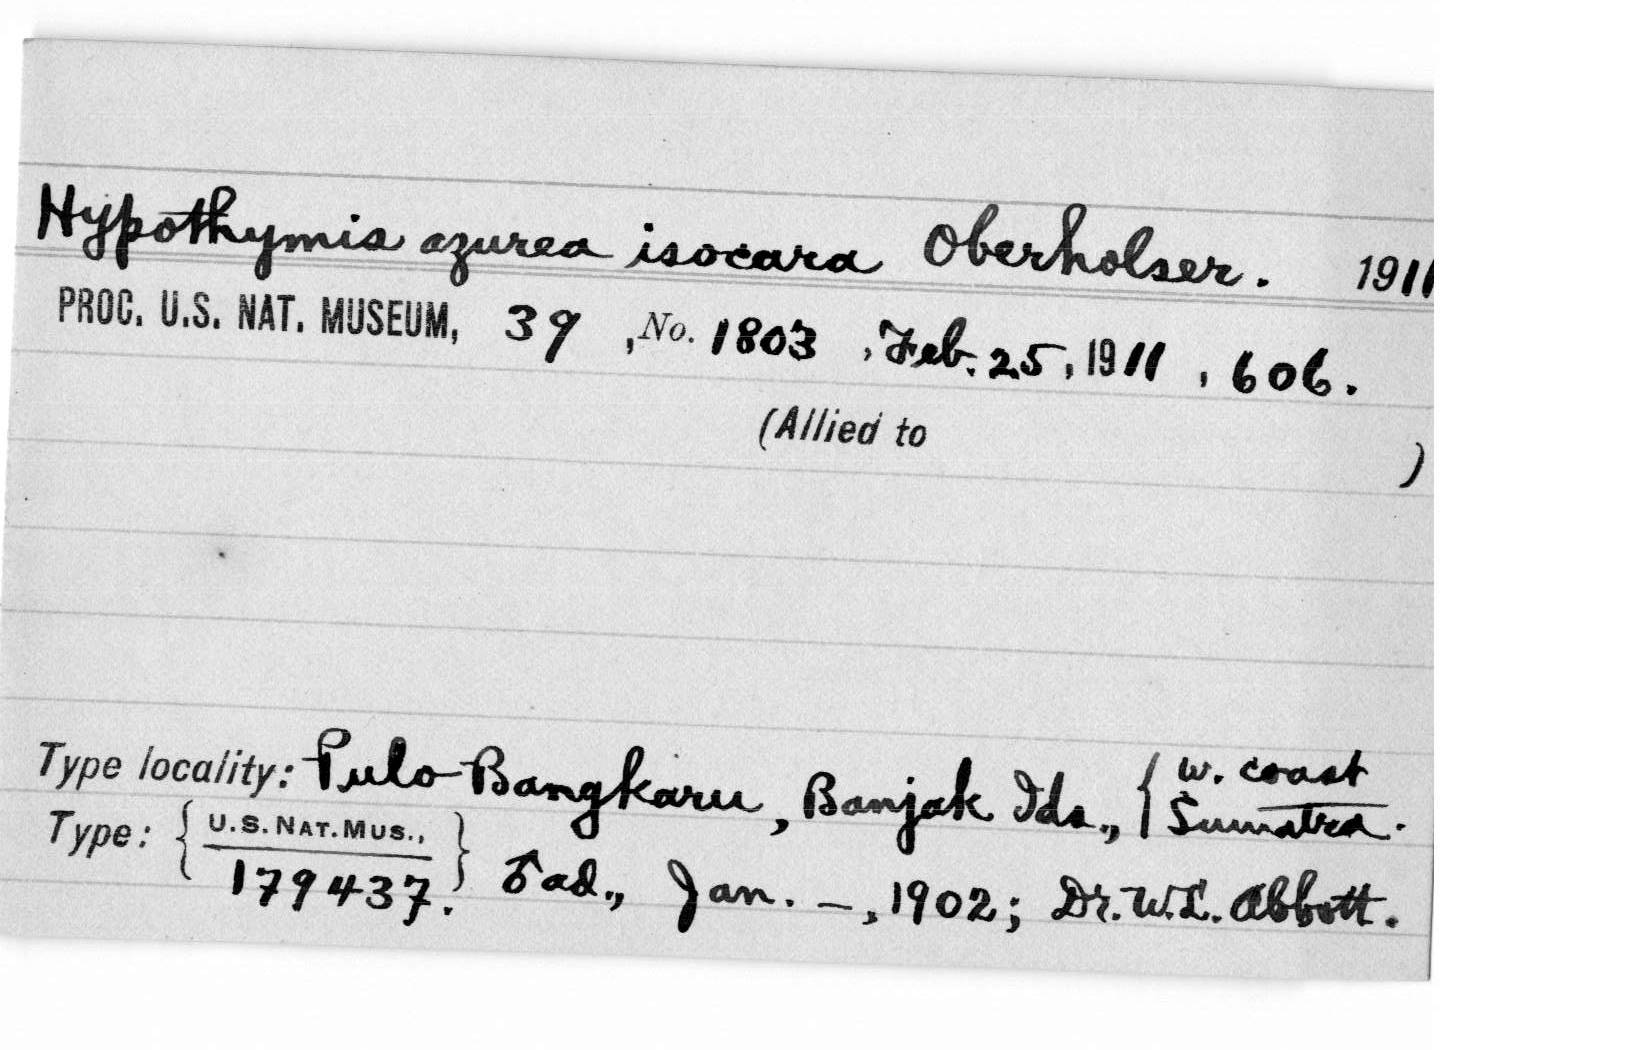 Hypothymis azurea isocara Oberholser. 1911
PROC. U.S. NAT. MUSEUM, 39, No. 1803, Feb. 25, 1911, 606.
(Allied to )
Type locality: Pulo Bangkaru, Banjak Ids., { W. coast
Sumatra.
Type: { U.S. NAT. MUS., } ♂ ad., Jan. –, 1902; Dr. W.L. Abbott.
179437.